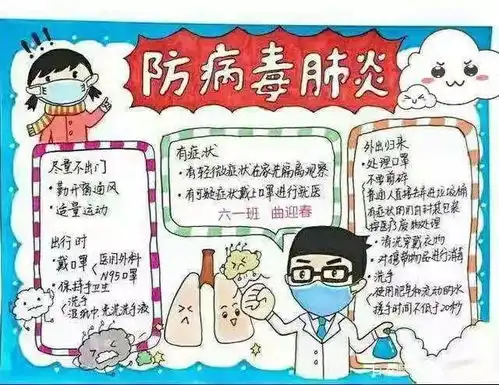 防病毒肺炎
尽量不出门
·勤开窗通风
·适量运动
出行时
·戴口罩
医用外科
N95口罩
·保持手卫生
洗手
免洗洗手液
有症状
·有轻微症状在家先隔离观察
·有可疑症状戴上口罩进行就医
六一班 曲迎春
外出归来
·处理口罩
·不要剪碎
普通人直接丢弃进垃圾桶
有症状的
按医疗废物处理
·清洗穿戴衣物
·对携带物品进行消毒
·洗手
使用肥皂和流动的水
搓手时间不低于20秒